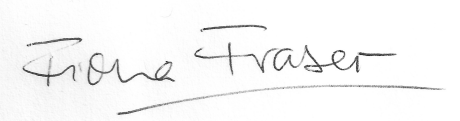 Fiona Fraser